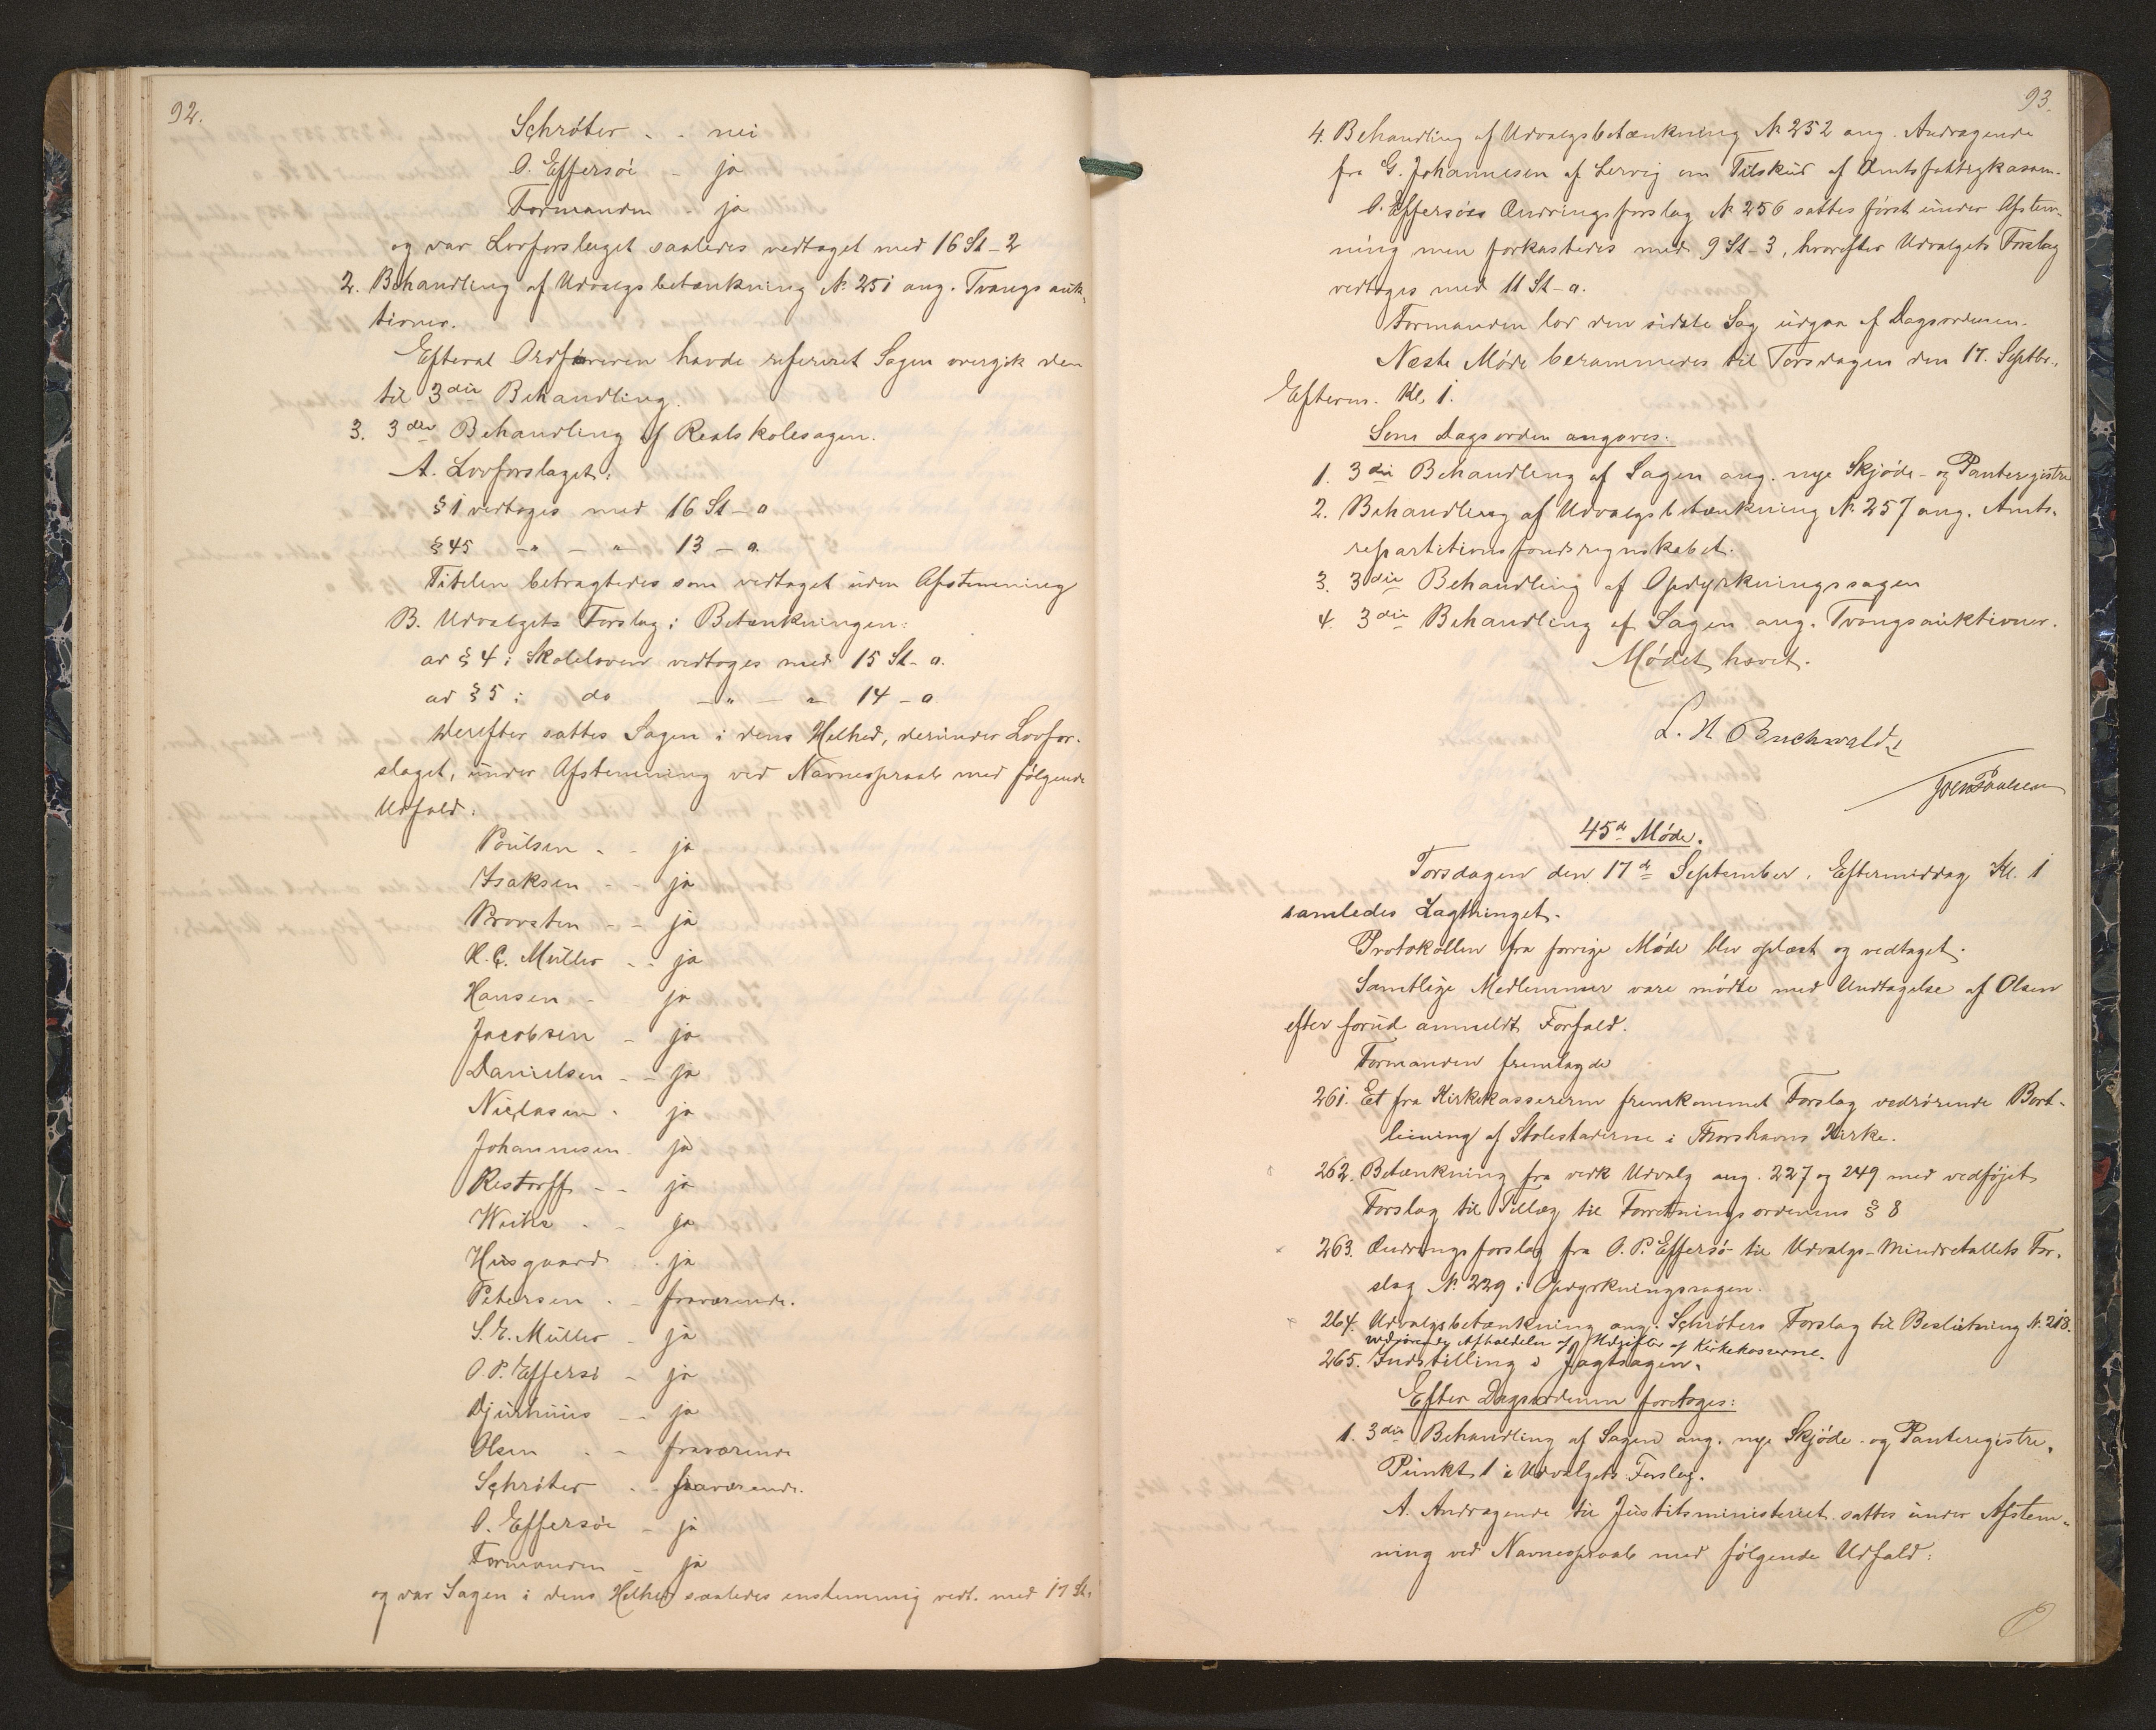 92.
Schröter - - nei
O. Effersöe - ja
Formanden - ja
og var Lovforslaget saaledes vedtaget med 16 St - 2
2. Behandling af Udvalgsbetænkning № 251 ang. Tvangsauk-
tioner.
Efterat Ordføreren havde refereret Sagen overgik den
til 3die Behandling.
3. 3die Behandling af Realskolesagen.
A. Lovforslaget:
§ 1 vedtoges med 16 St - 0
§ 45 -"- - "- 13 - 0.
Titelen betragtedes som vedtaget uden Afstemning
B. Udvalgets Forslag i Betænkningen:
ad § 4 i Skoleloven vedtoges med 15 St - 0.
ad § 5 i do -"- - "- 14 - 0
Derefter sattes Sagen i dens Helhed, derunder Lovfor-
slaget, under Afstemning ved Navneopraab med følgende
Udfald:
Poulsen - - ja
Isaksen - - ja
Provsten - - ja
R. C. Müller - - ja
Hansen - ja
Jacobsen - ja
Danielsen - - ja
Niclasen - ja
Johannesen - ja
Restorff - - ja
Weihe - - ja
Husgaard - ja
Petersen - - fraværende.
S. E. Müller - ja
O. P. Effersö - ja
Djurhuus - - ja
Olsen - - fraværende
Schröter - - fraværende.
O. Effersöe - ja
Formanden - ja
og var Sagen i dens Helhed saaledes enstemmig vedt. med 17 St.
93.
4. Behandling af Udvalgsbetænkning № 252 ang. Andragende
fra G. Johannesen af Lervig om Tilskud af Amtsfattigkassen.
O. Effersöes Ændringsforslag № 256 sattes først under Afstem-
ning men forkastedes med 9 St - 3, hvorefter Udvalgets Forslag
vedtoges med 11 St - 0.
Formanden lod den sidste Sag udgaa af Dagsordenen.
Næste Møde berammedes til Torsdagen den 17. Septbr.,
Efterm. Kl. 1.
Som Dagsorden angaves:
1. 3die Behandling af Sagen ang. nye Skjøde- og Panteregistre
2. Behandling af Udvalgsbetænkning № 257 ang. Amts-
repartitionsfondsregnskabet.
3. 3die Behandling af Opdyrkningssagen
4. 3die Behandling af Sagen ang. Tvangsauktioner.
Mødet hævet.
L. H. Buchwaldt
45de Møde.
Torsdagen den 17de September, Eftermiddag Kl. 1
samledes Lagthinget.
Protokollen fra forrige Møde blev oplæst og vedtaget.
Samtlige Medlemmer vare mødte med Undtagelse af Olsen
efter forud anmeldt Forfald.
Formanden fremlagde
261. Et fra Kirkekassereren fremkommet Forslag vedrørende Bort-
leining af Stolestaderne i Thorshavns Kirke.
262. Betænkning fra vedk Udvalg ang. 227 og 249 med vedføjet
Forslag til Tillæg til Forretningsordenens § 8
263. Ændringsforslag fra O. P. Effersö til Udvalgs-Mindretallets For-
slag № 229 i Opdyrkningssagen.
264. Udvalgsbetænkning ang. Schröters Forslag til Beslutning № 218.
vedrørende Afholdelse af Udgifter af Kirkekasserne.
265. Indstilling i Jagtsagen.
Efter Dagsordenen foretoges:
1. 3die Behandling af Sagen ang. nye Skjøde- og Panteregistre.
Punkt 1 i Udvalgets Forslag.
A. Andragende til Justitsministeriet sattes under Afstem-
ning ved Navneopraab med følgende Udfald: